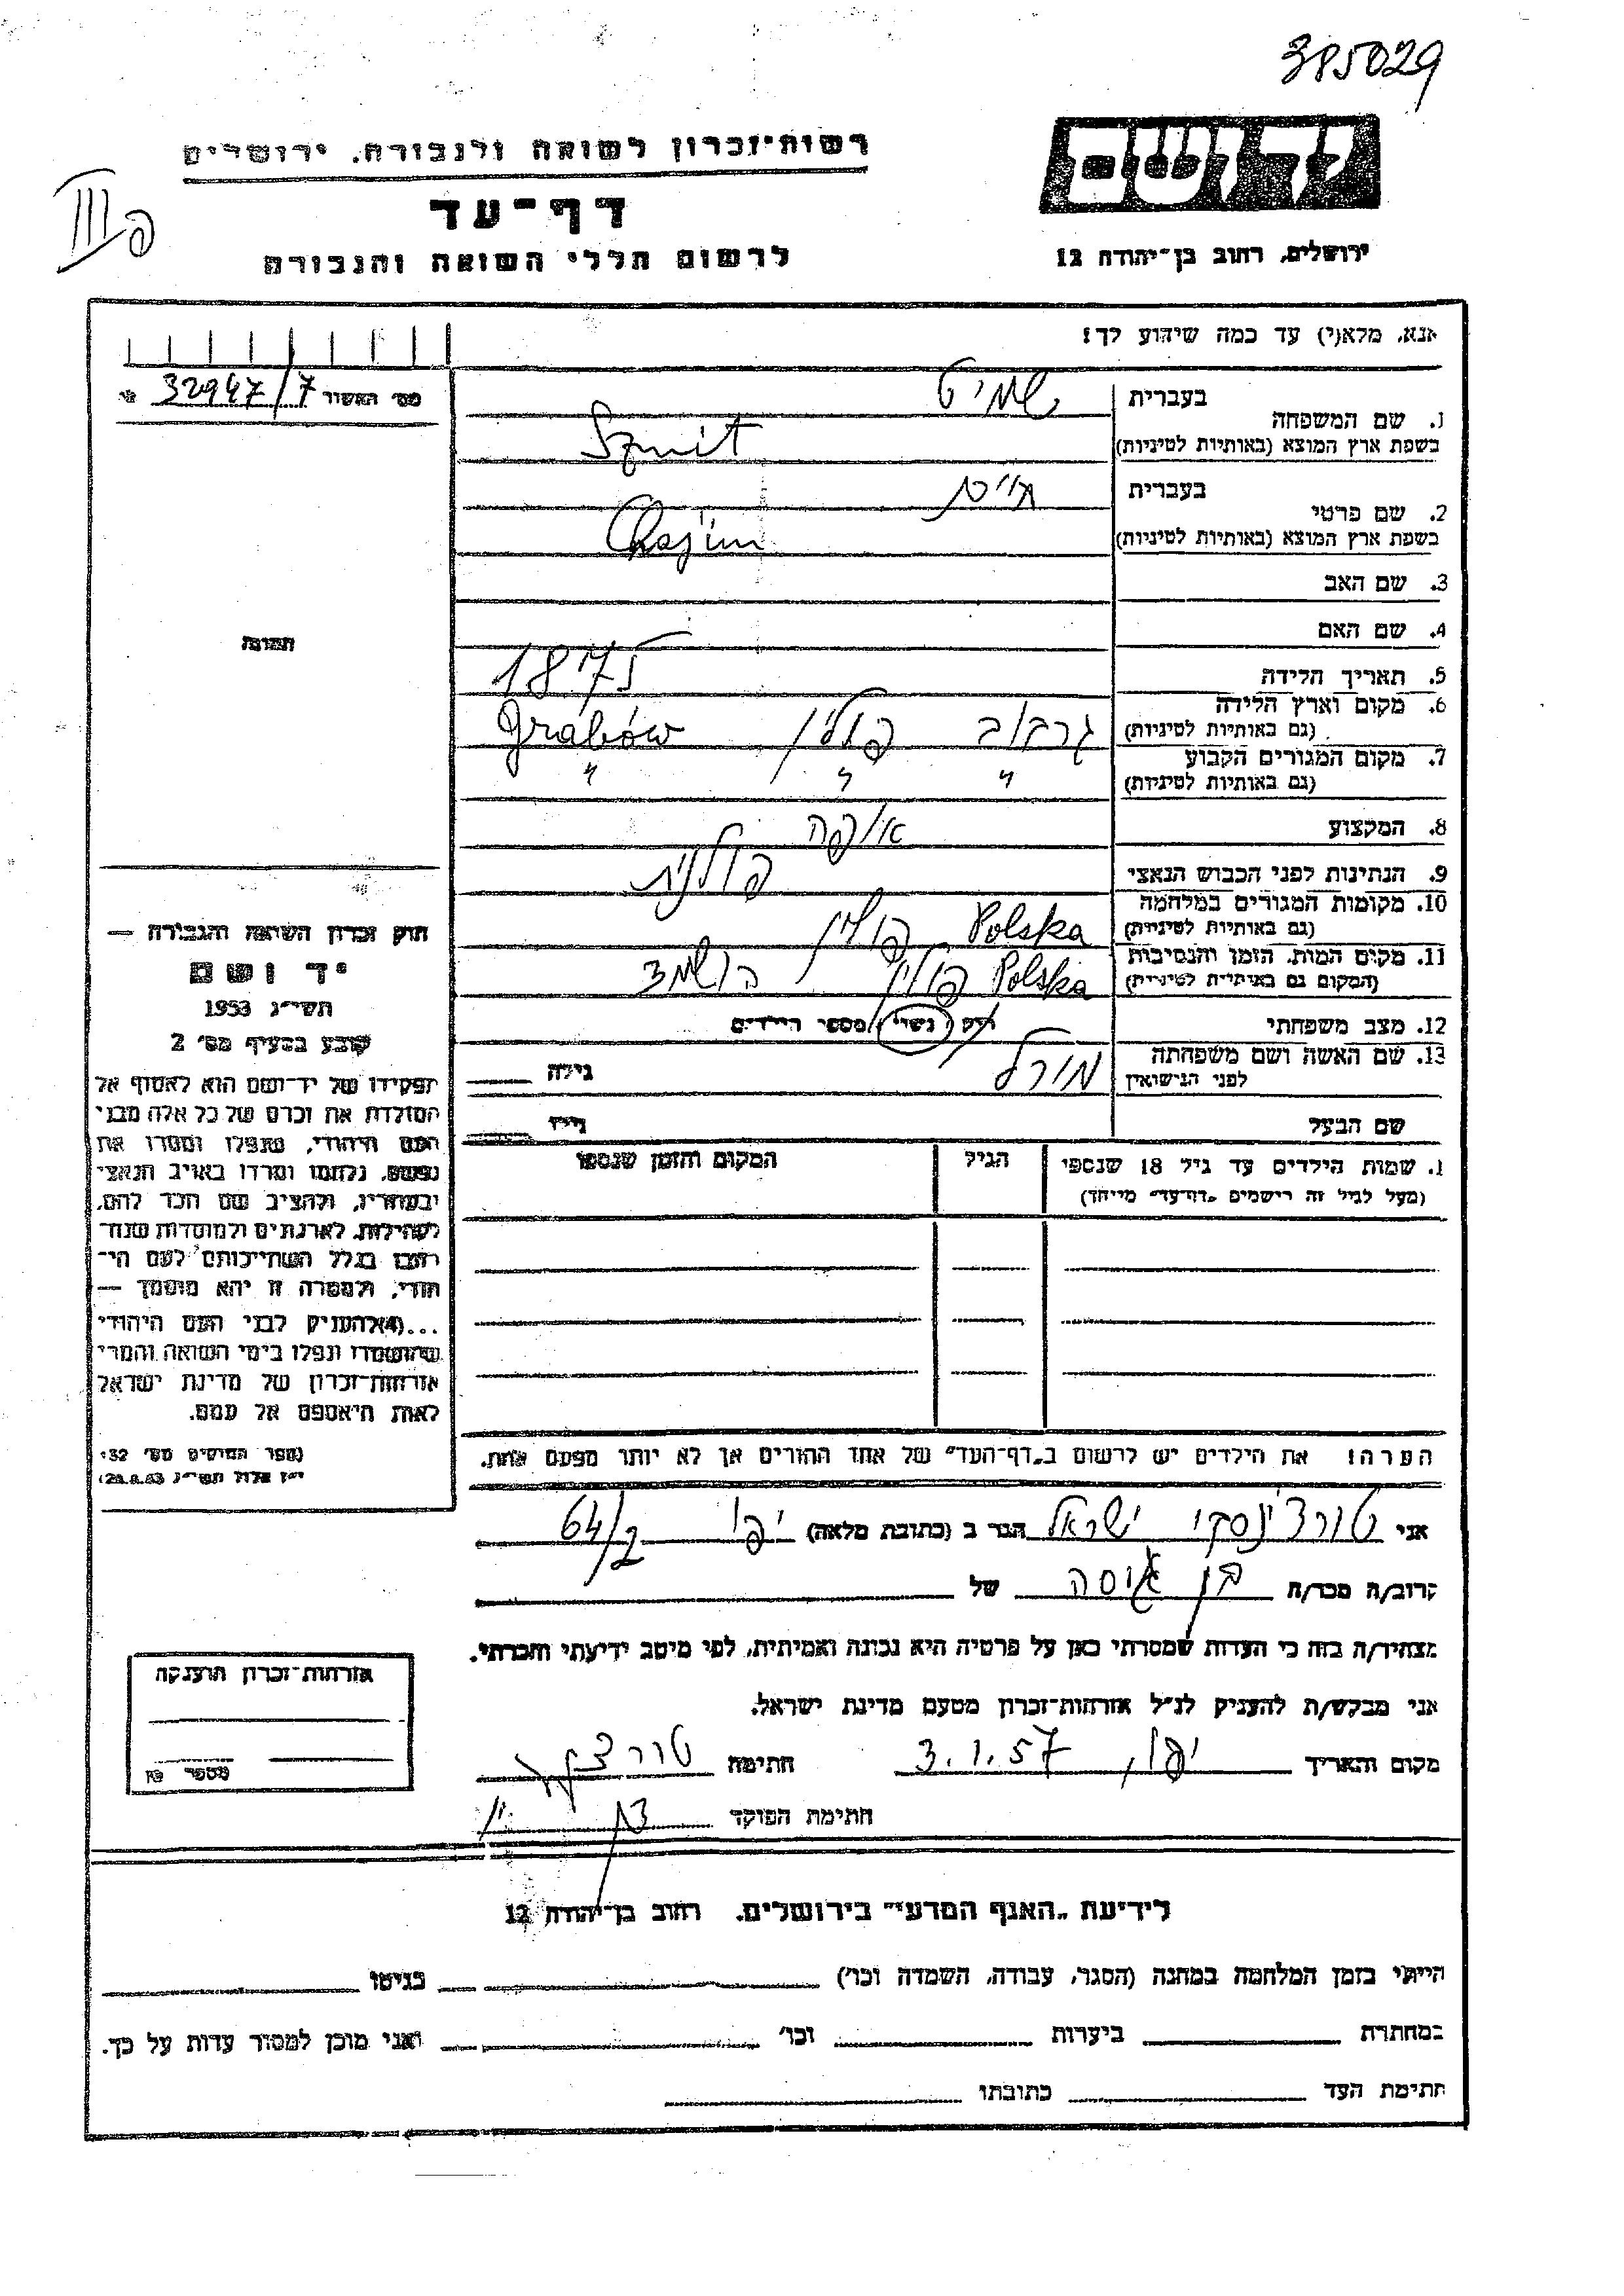 385029
רשות־זכרון לשואה ולגבורה, ירושלים
דף־עד
לרשום חללי השואה והגבורה
פ III
יד ושם
ירושלים, רחוב בן־יהודה 12
אנא, מלא(י) עד כמה שידוע לך!
מס׳ האשור 32947/7
1. שם המשפחה
בעברית שמיט
בשפת ארץ המוצא (באותיות לטיניות) Szmit
2. שם פרטי
בעברית חיים
בשפת ארץ המוצא (באותיות לטיניות) Chajim
3. שם האב
4. שם האם
5. תאריך הלידה 1875
6. מקום וארץ הלידה
(גם באותיות לטיניות) גרבוב פולין Grabów
7. מקום המגורים הקבוע
(גם באותיות לטיניות) " " "
8. המקצוע אופה
9. הנתינות לפני הכבוש הנאצי פולנית
10. מקומות המגורים במלחמה
(גם באותיות לטיניות) Polska פולין
11. מקום המות, הזמן והנסיבות
(המקום גם באותיות לטיניות) Polska פולין הושמד
12. מצב משפחתי רוק / נשוי / מספר הילדים
13. שם האשה ושם משפחתה
לפני הנישואין מורל גילה
שם הבעל גילו
תמונה
חוק זכרון השואה והגבורה —
יד ושם
תשי״ג 1953
קובע בסעיף מס׳ 2
תפקידו של יד־ושם הוא לאסוף אל
המולדת את זכרם של כל אלה מבני
העם היהודי, שנפלו ומסרו את
נפשם, נלחמו ומרדו באויב הנאצי
ובעוזריו, ולהציב שם וזכר להם,
לקהילות, לארגונים ולמוסדות שנח־
רבו בגלל השתייכותם לעם הי־
הודי, ולמטרה זו יהא מוסמך —
...(4)להעניק לבני העם היהודי
שהושמדו ונפלו בימי השואה והמרי
אזרחות־זכרון של מדינת ישראל
לאות היאספם אל עמם.
(ספר החוקים מס׳ 132
י״ז אלול תשי״ג 28.8.53)
1. שמות הילדים עד גיל 18 שנספו
(מעל לגיל זה רישמים „דף־עד״ מייחד)
הגיל
המקום והזמן שנספו
הערה! את הילדים יש לרשום ב„דף־העד״ של אחד ההורים אך לא יותר מפעם אחת.
אני טורצ'ינסקי ישראל הגר ב (כתובת מלאה) יפו 64/2
קרוב/ה מכר/ה בן גיסה של
מצהיר/ה בזה כי העדות שמסרתי כאן על פרטיה היא נכונה ואמיתית, לפי מיטב ידיעתי והכרתי.
אני מבקש/ת להעניק לנ״ל אזרחות־זכרון מטעם מדינת ישראל.
מקום ותאריך יפו, 3.1.57 חתימה
חתימת הפוקד
אזרחות־זכרון הוענקה
מספר
לידיעת „האגף המדעי״ בירושלים. רחוב בן־יהודה 12
הייתי בזמן המלחמה במחנה (הסגר, עבודה, השמדה וכו׳) בגיטו
במחתרת ביערות וכו׳ ואני מוכן למסור עדות על כך.
חתימת העד כתובתו